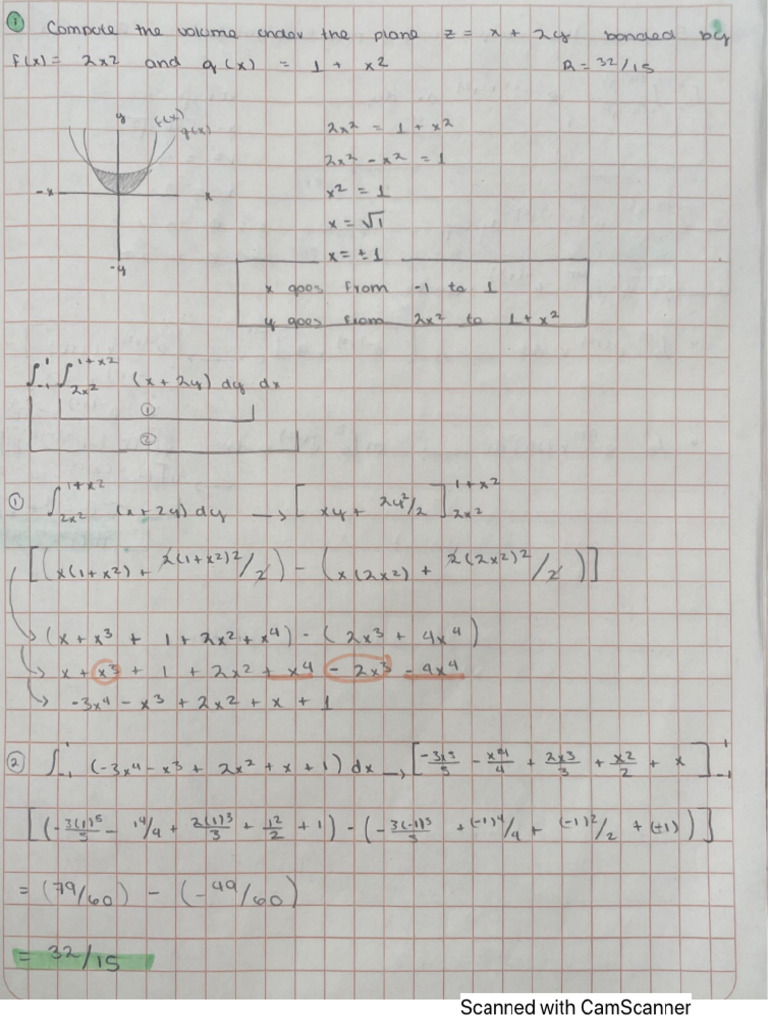 ① Compute the volume under the plane z = x + 2y bonded by
f(x) = 2x2 and g(x) = 1 + x2 R = 32/15
y f(x)
g(x)
-x x
-y
2x² = 1 + x2
2x² - x² = 1
x² = 1
x = √1
x = ± 1
x goes from -1 to 1
y goes from 2x² to 1+x²
∫₋₁¹ ∫₂ₓ₂¹⁺ˣ² (x + 2y) dy dx
①
②
① ∫₂ₓ₂¹⁺ˣ² (x + 2y) dy → [ xy + 2y²/2 ]₂ₓ₂¹⁺ˣ²
[(x(1+x2) + 2(1+x2)2/2) - (x(2x2) + 2(2x2)2/2)]
(x + x3 + 1 + 2x2 + x4) - (2x3 + 4x4)
x + x3 + 1 + 2x2 + x4 - 2x3 - 4x4
-3x4 - x3 + 2x2 + x + 1
② ∫₋₁¹ (-3x4 - x3 + 2x2 + x + 1) dx → [-3x5/5 - x4/4 + 2x3/3 + x2/2 + x]₋₁¹
[(-3(1)5/5 - 14/4 + 2(1)3/3 + 12/2 + 1) - (-3(-1)5/5 + (-1)4/4 + (-1)2/2 + (-1))]
= (79/60) - (-49/60)
= 32/15
Scanned with CamScanner